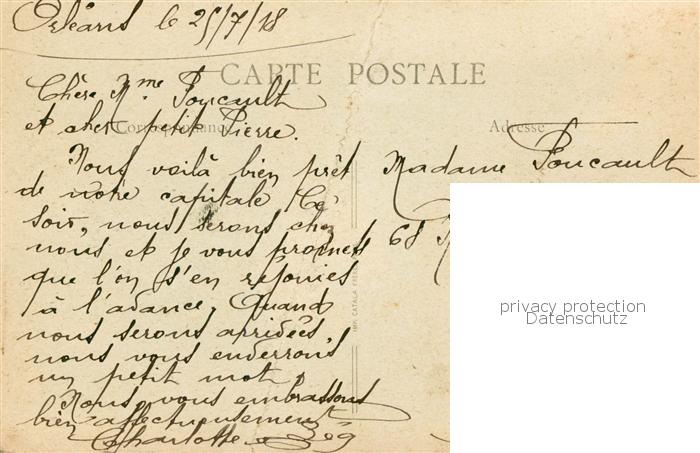 Orléans le 25/7/18
CARTE POSTALE
Chère Mme Foucault
et cher petit Pierre.
Correspondance
Adresse
Nous voilà bien prêt
de notre capitale Ce
soir, nous serons chez
nous et je vous promets
que l'on s'en rejouies
à l'avance, Quand
nous serons arrivées,
nous vous enverrons
un petit mot.
Nous vous embrassons
bien affectueusement
Charlotte
Madame Foucault
68
IMP. CATALA FRERES
privacy protection
Datenschutz